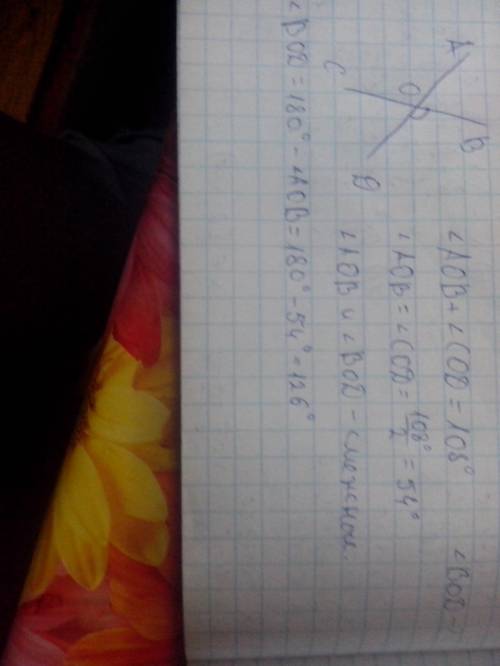 A
B
O
C
D
∠AOB + ∠COD = 108°
∠BOD -
∠AOB = ∠COD = 108°/2 = 54°
∠AOB и ∠BOD - смежные.
∠BOD = 180° - ∠AOB = 180° - 54° = 126°